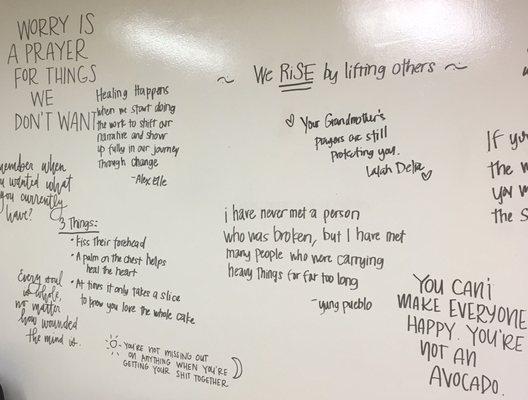 WORRY IS
A PRAYER
FOR THINGS
WE
DON'T WANT
Healing Happens
when we start doing
the work to shift our
narrative and show
up fully in our journey
through change
-Alex Elle
~ We RISE by lifting others ~
♡ Your Grandmother's
prayers are still
protecting you.
Lalah Delia ♡
If you
the w
you
the s
member when
u wanted what
you currently
have?
3 Things:
• Kiss their forehead
• A palm on the chest helps
heal the heart
• At times it only takes a slice
to know you love the whole cake
i have never met a person
who was broken, but I have met
many people who were carrying
heavy things for far too long
- yung pueblo
Every soul
is whole,
no matter
how wounded
the mind is.
YOU'RE NOT MISSING OUT
ON ANYTHING WHEN YOU'RE
GETTING YOUR SHIT TOGETHER.
YOU CAN'T
MAKE EVERYONE
HAPPY. YOU'RE
NOT AN
AVOCADO.